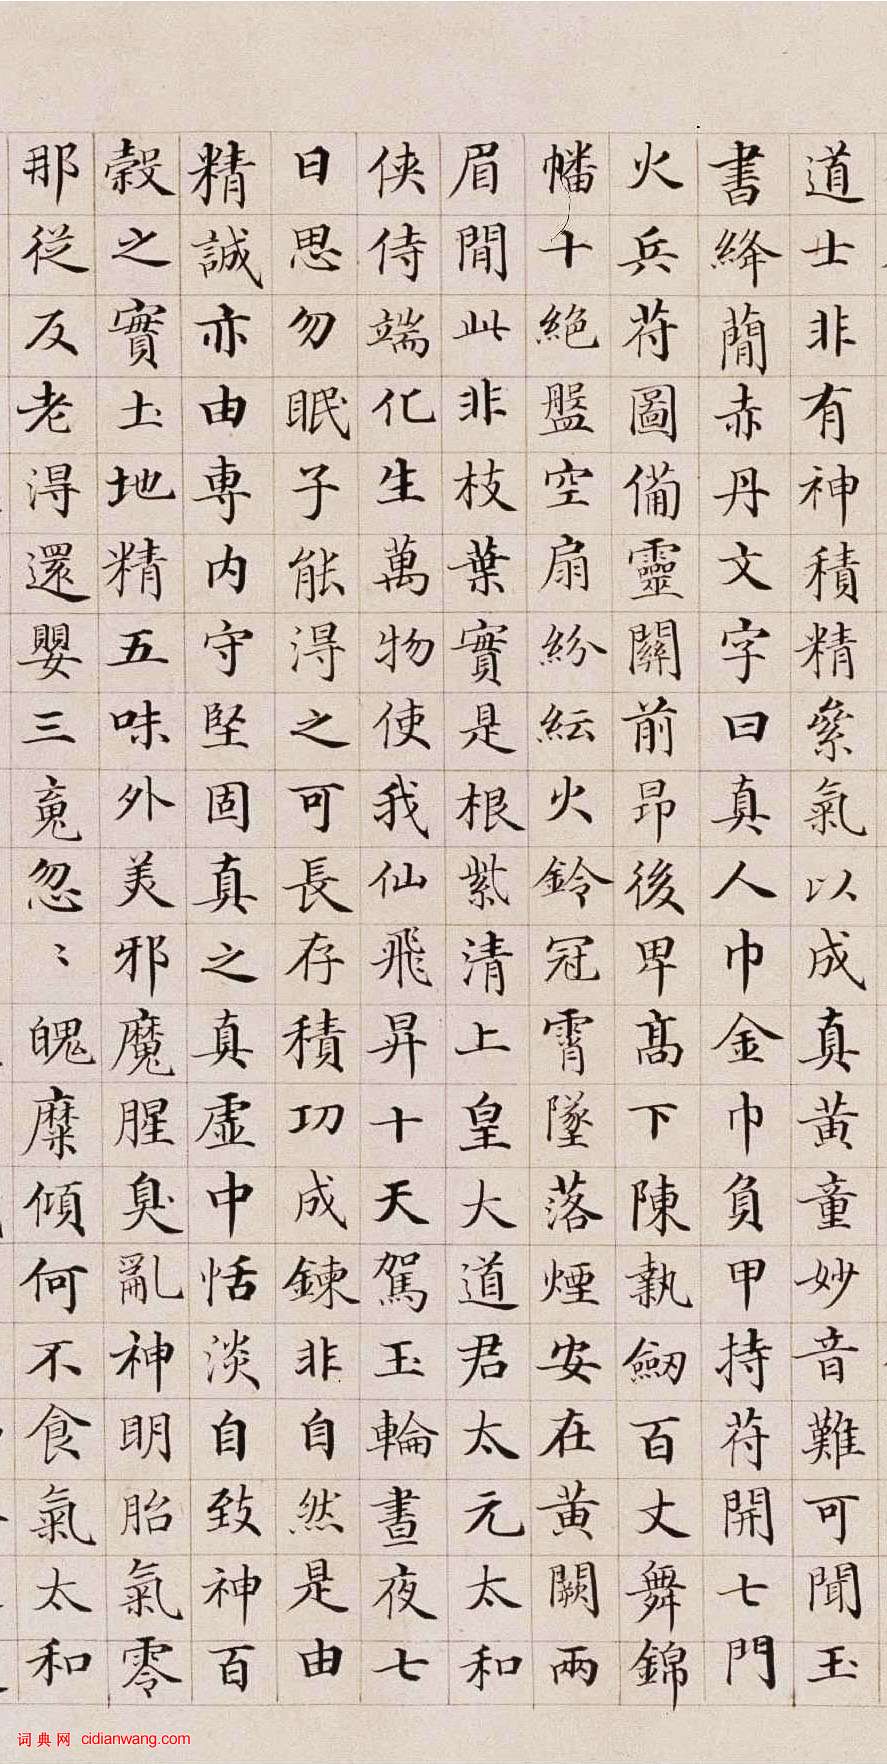 道士非有神積精絫氣以成真黃童妙音難可聞玉
書絳蕳赤丹文字曰真人巾金巾負甲持苻開七門
火兵苻圖備靈關前昂後卑髙下陳執劒百丈舞錦
幡十絶盤空扇紛紜火鈴冠霄墜落煙安在黃闕兩
眉間此非枝葉實是根紫清上皇大道君太元太和
侠侍端化生萬物使我仙飛昇十天駕玉輪晝夜七
日思勿眠子能淂之可長存積功成鍊非自然是由
精誠亦由専内守堅固真之真虛中恬淡自致神百
穀之實土地精五味外美邪魔腥臭亂神明胎氣零
那從反老淂還嬰三䰟忽〻魄糜傾何不食氣太和
词典网 cidianwang.com